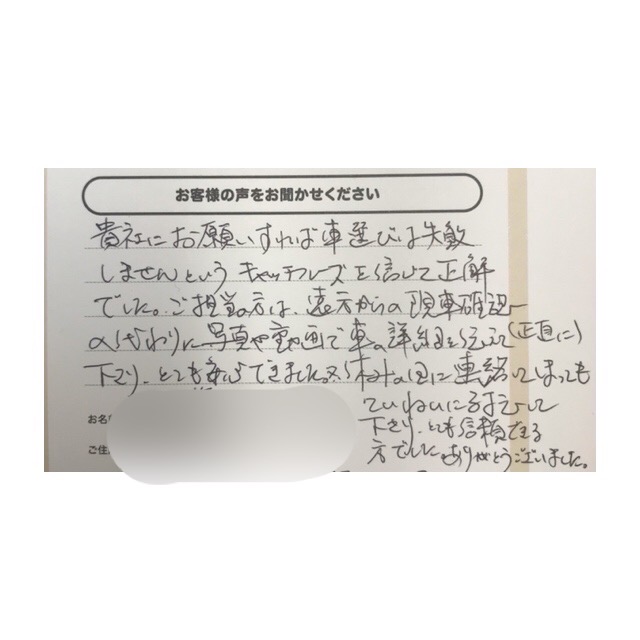 お客様の声をお聞かせください
貴社にお願いすれば車選びは失敗
しませんという キャッチフレーズを信じて正解
でした。ご担当の方は、遠方からの現車確認
の代わりに写真や動画で車の詳細を伝えて(正直に)
下さり、とても安心できました。又、休みの日に連絡してしまっても
ていねいに対応して
下さり、とても信頼できる
方でした。ありがとうございました。
お名
ご住